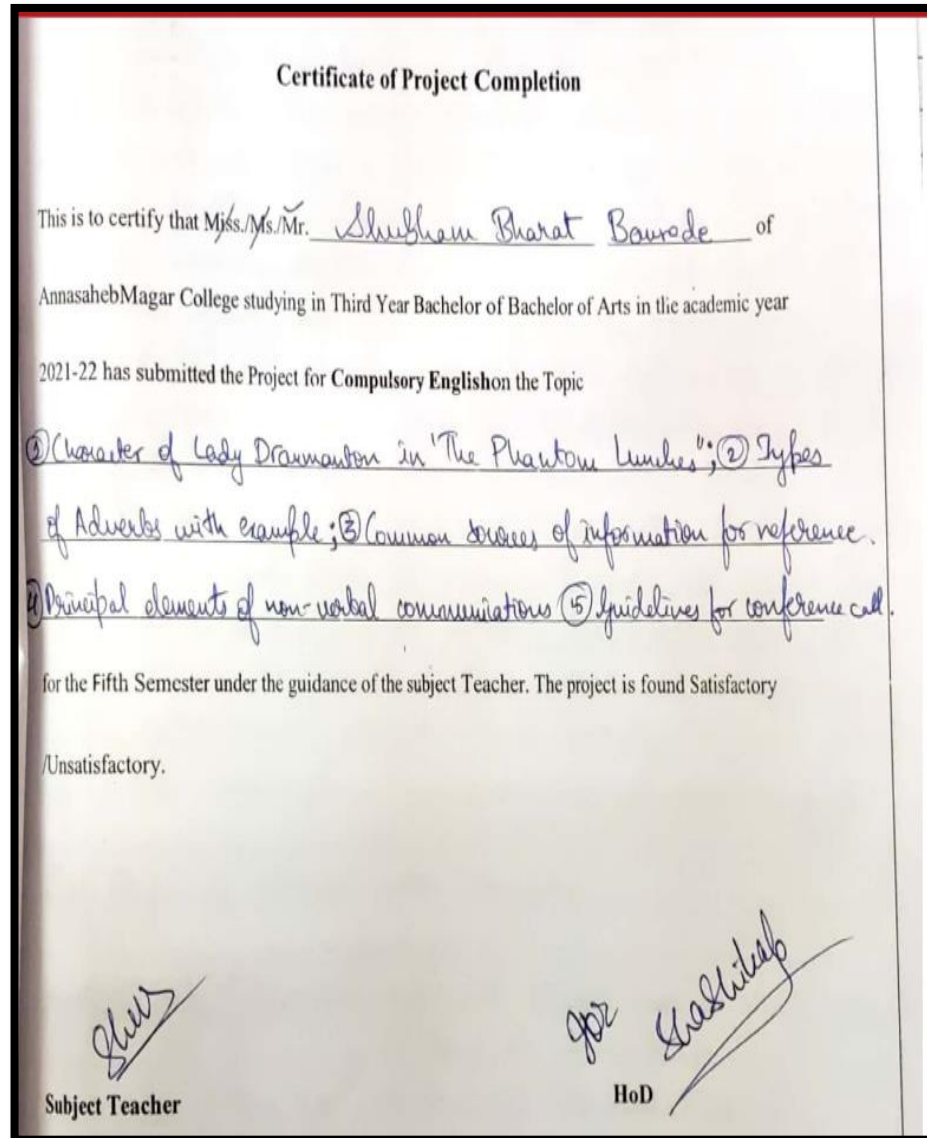 Certificate of Project Completion
This is to certify that Miss./Ms./Mr. Shubham Bharat Bowrode of
AnnasahebMagar College studying in Third Year Bachelor of Bachelor of Arts in the academic year
2021-22 has submitted the Project for Compulsory Englishon the Topic
① Character of Lady Drarmanton in 'The Phantom Lunches"; ② Types
of Adverbs with example; ③ Common sources of information for reference.
④ Principal elements of non-verbal communications ⑤ Guidelines for conference call.
for the Fifth Semester under the guidance of the subject Teacher. The project is found Satisfactory
/Unsatisfactory.
for
Subject Teacher HoD